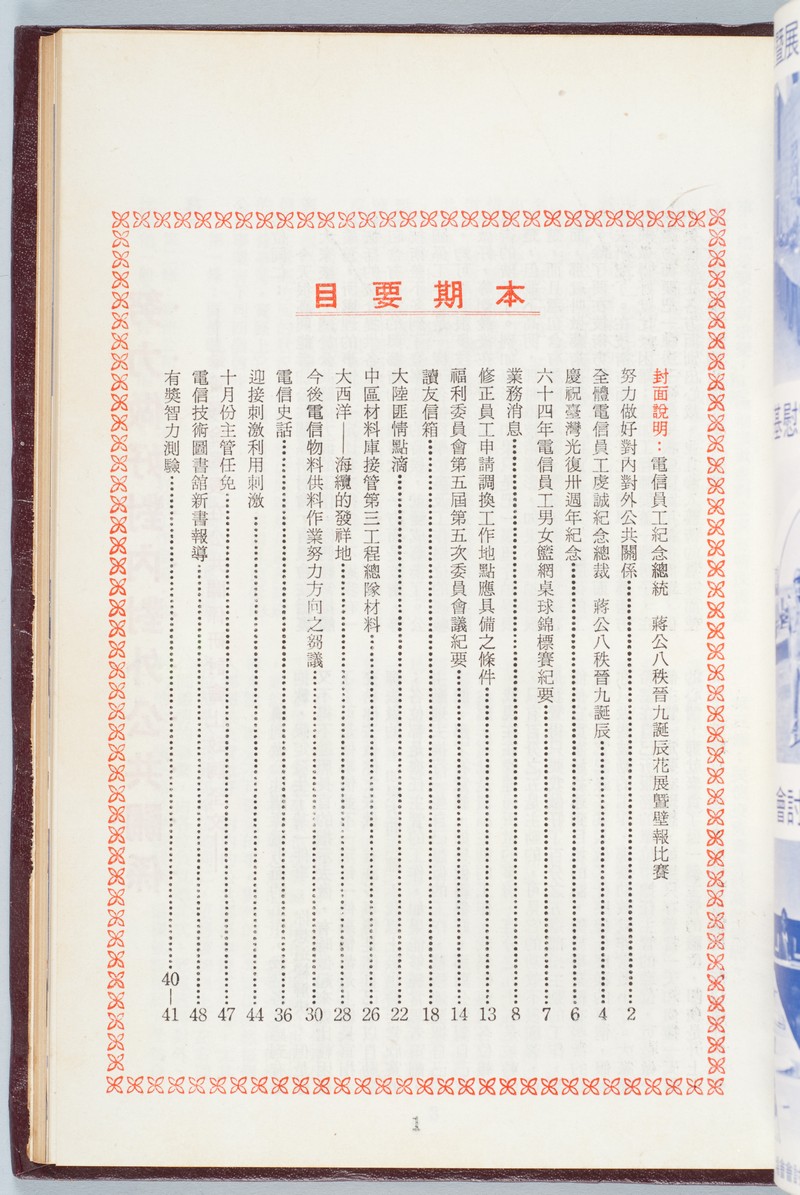 本期要目
封面說明：電信員工紀念總統　蔣公八秩晉九誕辰花展暨壁報比賽
努力做好對內對外公共關係……2
全體電信員工虔誠紀念總裁　蔣公八秩晉九誕辰……4
慶祝臺灣光復卅週年紀念……6
六十四年電信員工男女籃網桌球錦標賽紀要……7
業務消息……8
修正員工申請調換工作地點應具備之條件……13
福利委員會第五屆第五次委員會議紀要……14
讀友信箱……18
大陸匪情點滴……22
中區材料庫接管第三工程總隊材料……26
大西洋——海纜的發祥地……28
今後電信物料供料作業努力方向之芻議……30
電信史話……36
迎接刺激利用刺激……44
十月份主管任免……47
電信技術圖書舘新書報導……48
有獎智力測驗……40—41
1